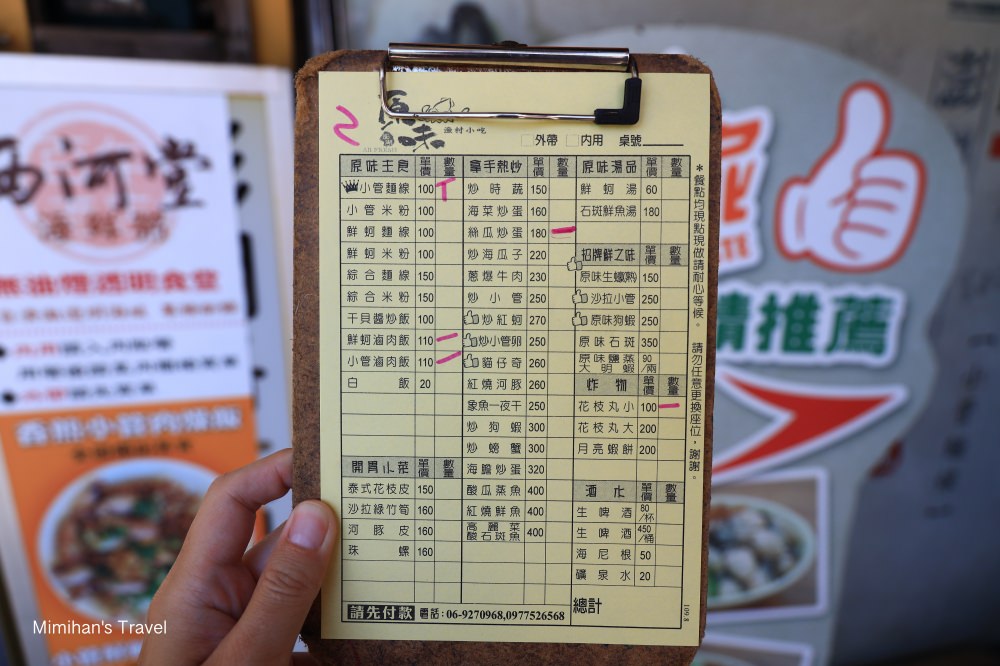 原味
漁村小吃
2
外帶 內用 桌號
原味主食 單價 數量
小管麵線 100 T
小管米粉 100
鮮蚵麵線 100
鮮蚵米粉 100
綜合麵線 150
綜合米粉 150
干貝醬炒飯 100
鮮蚵滷肉飯 110 一
小管滷肉飯 110 一
白飯 20
開胃小菜 單價 數量
泰式花枝皮 150
沙拉綠竹筍 160
河豚皮 160
珠螺 160
拿手熱炒 單價 數量
炒時蔬 150
海菜炒蛋 160
絲瓜炒蛋 180 一
炒海瓜子 220
蔥爆牛肉 230
炒小管 250
炒紅蚵 270
炒小管卵 250
貓仔奇 260
紅燒河豚 260
象魚一夜干 250
炒狗蝦 300
炒螃蟹 300
海膽炒蛋 320
酸瓜蒸魚 400
紅燒鮮魚 400
高麗菜酸石斑魚 400
原味湯品 單價 數量
鮮蚵湯 60
石斑鮮魚湯 180
招牌鮮之味 單價 數量
原味生蠔熟 150
沙拉小管 250
原味狗蝦 250
原味石斑 350
原味鹽蒸大明蝦 90/兩
炸物 單價 數量
花枝丸小 100 一
花枝丸大 200
月亮蝦餅 200
酒水 單價 數量
生啤酒 80/杯
生啤酒 450/桶
海尼根 50
礦泉水 20
總計
請先付款 電話:06-9270968,0977526568
*餐點均現點現做請耐心等候。請勿任意更換座位，謝謝。
109.8
河堂
推薦
Mimihan's Travel